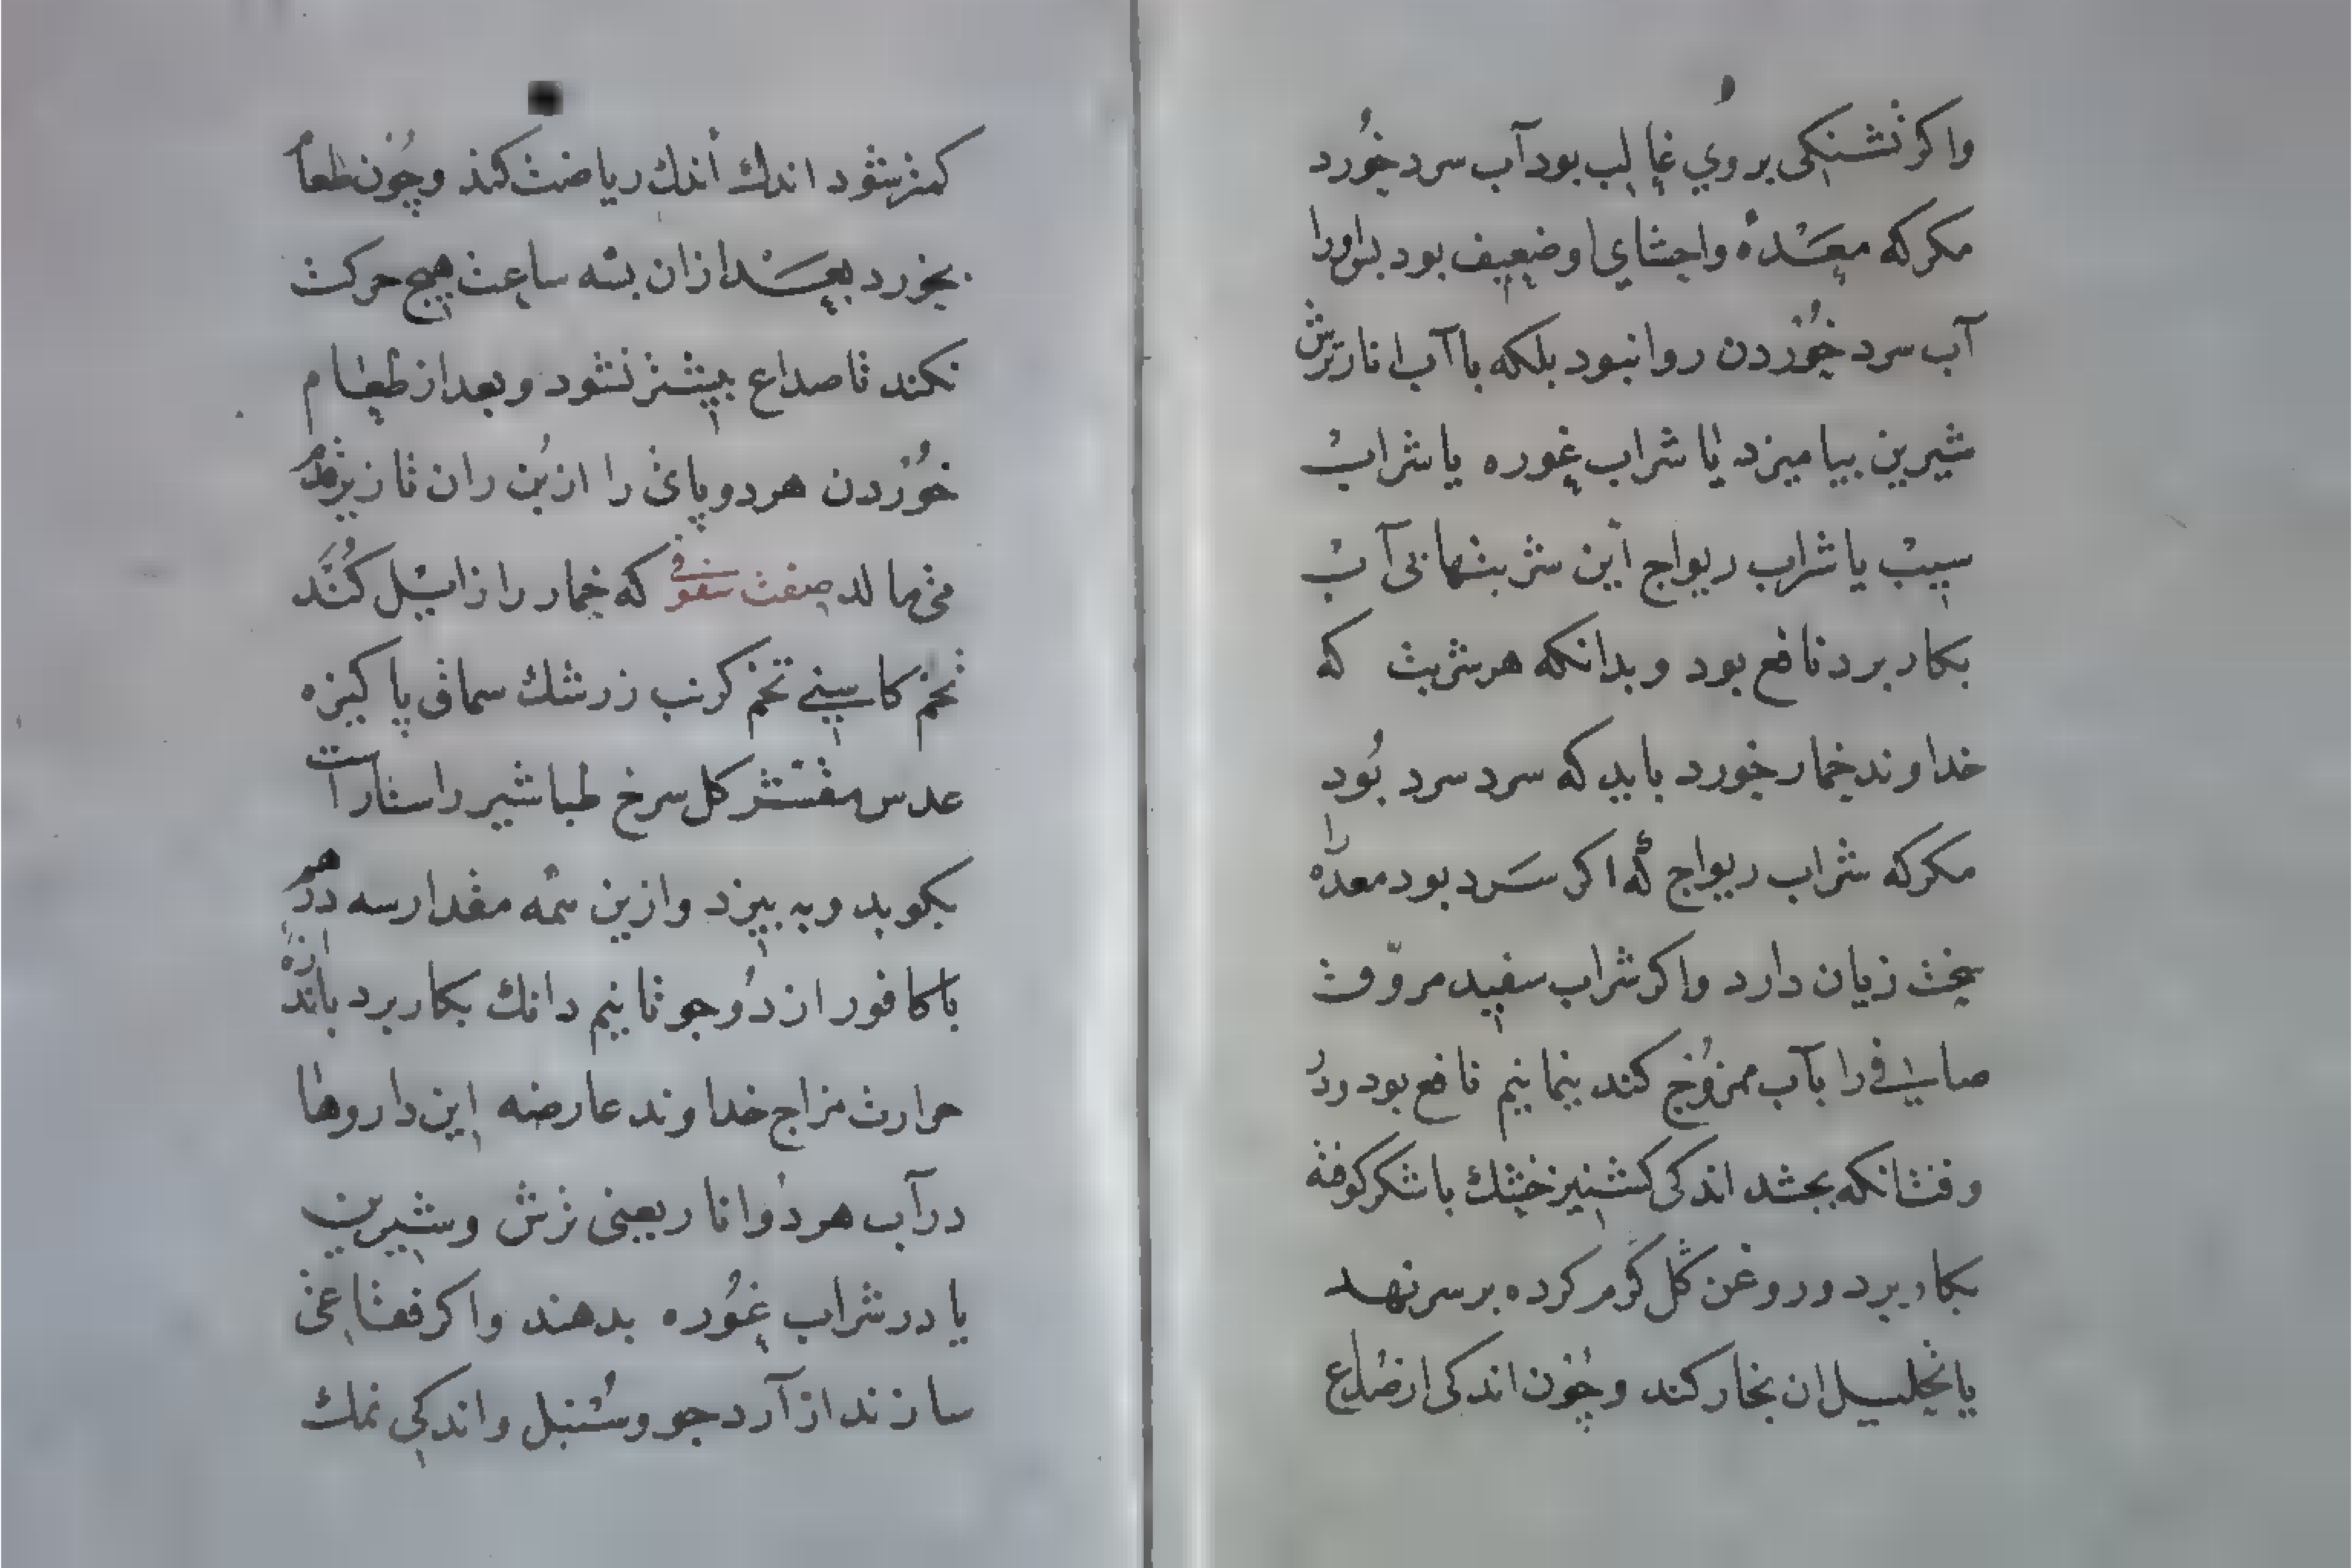 واکر تشنکی بروی غالب بود آب سرد خورد
مکر که معده واحشای او ضعیف بود پس اورا
آب سرد خوردن روا نبود بلکه با آب انار ترش
شیرین بیامیزد یا با شراب غوره یا شراب
سیب یا شراب ریواج این شربتها بی آب
بکار برد نافع بود و بدانکه هر شربت که
خداوند خمار خورد باید که سرد سرد بود
مکر که شراب ریواج که اکر سرد بود معده را
سخت زیان دارد واکر شراب سفید مروق
صافی را بآب ممزوج کند نیما نیم نافع بود ودر
وقتانکه بخسبد اندکی کشنیز خشک با شکر کوفته
بکار برد وروغن کل کرم کرده بر سر نهد
یا تحلیل ان بخار کند وچون اندکی از صداع
کمتر شود اندک اندک ریاضت کند وچون طعام
بخورد بعد ازان بسه ساعت هیچ حرکت
نکند تا صداع بیشتر نشود وبعد از طعام
خوردن هر دو پای را از بن ران تا زیر قدم
می مالد صفت سفوفی که خمار را زایل کند
تخم کاسنی تخم کرنب زرشک سماق پاکیزه
عدس مقشر کل سرخ طباشیر راستا راست
بکوبد وبه بیزد وازین همه مقدار سه درهم
با کافور از دو جو تا نیم دانک بکار برد باندازه
حرارت مزاج خداوند عارضه این داروها
در آب هر دو انار یعنی ترش وشیرین
یا در شراب غوره بدهند واکر فقاعی
سازند از آرد جو وسنبل واندکی نمک